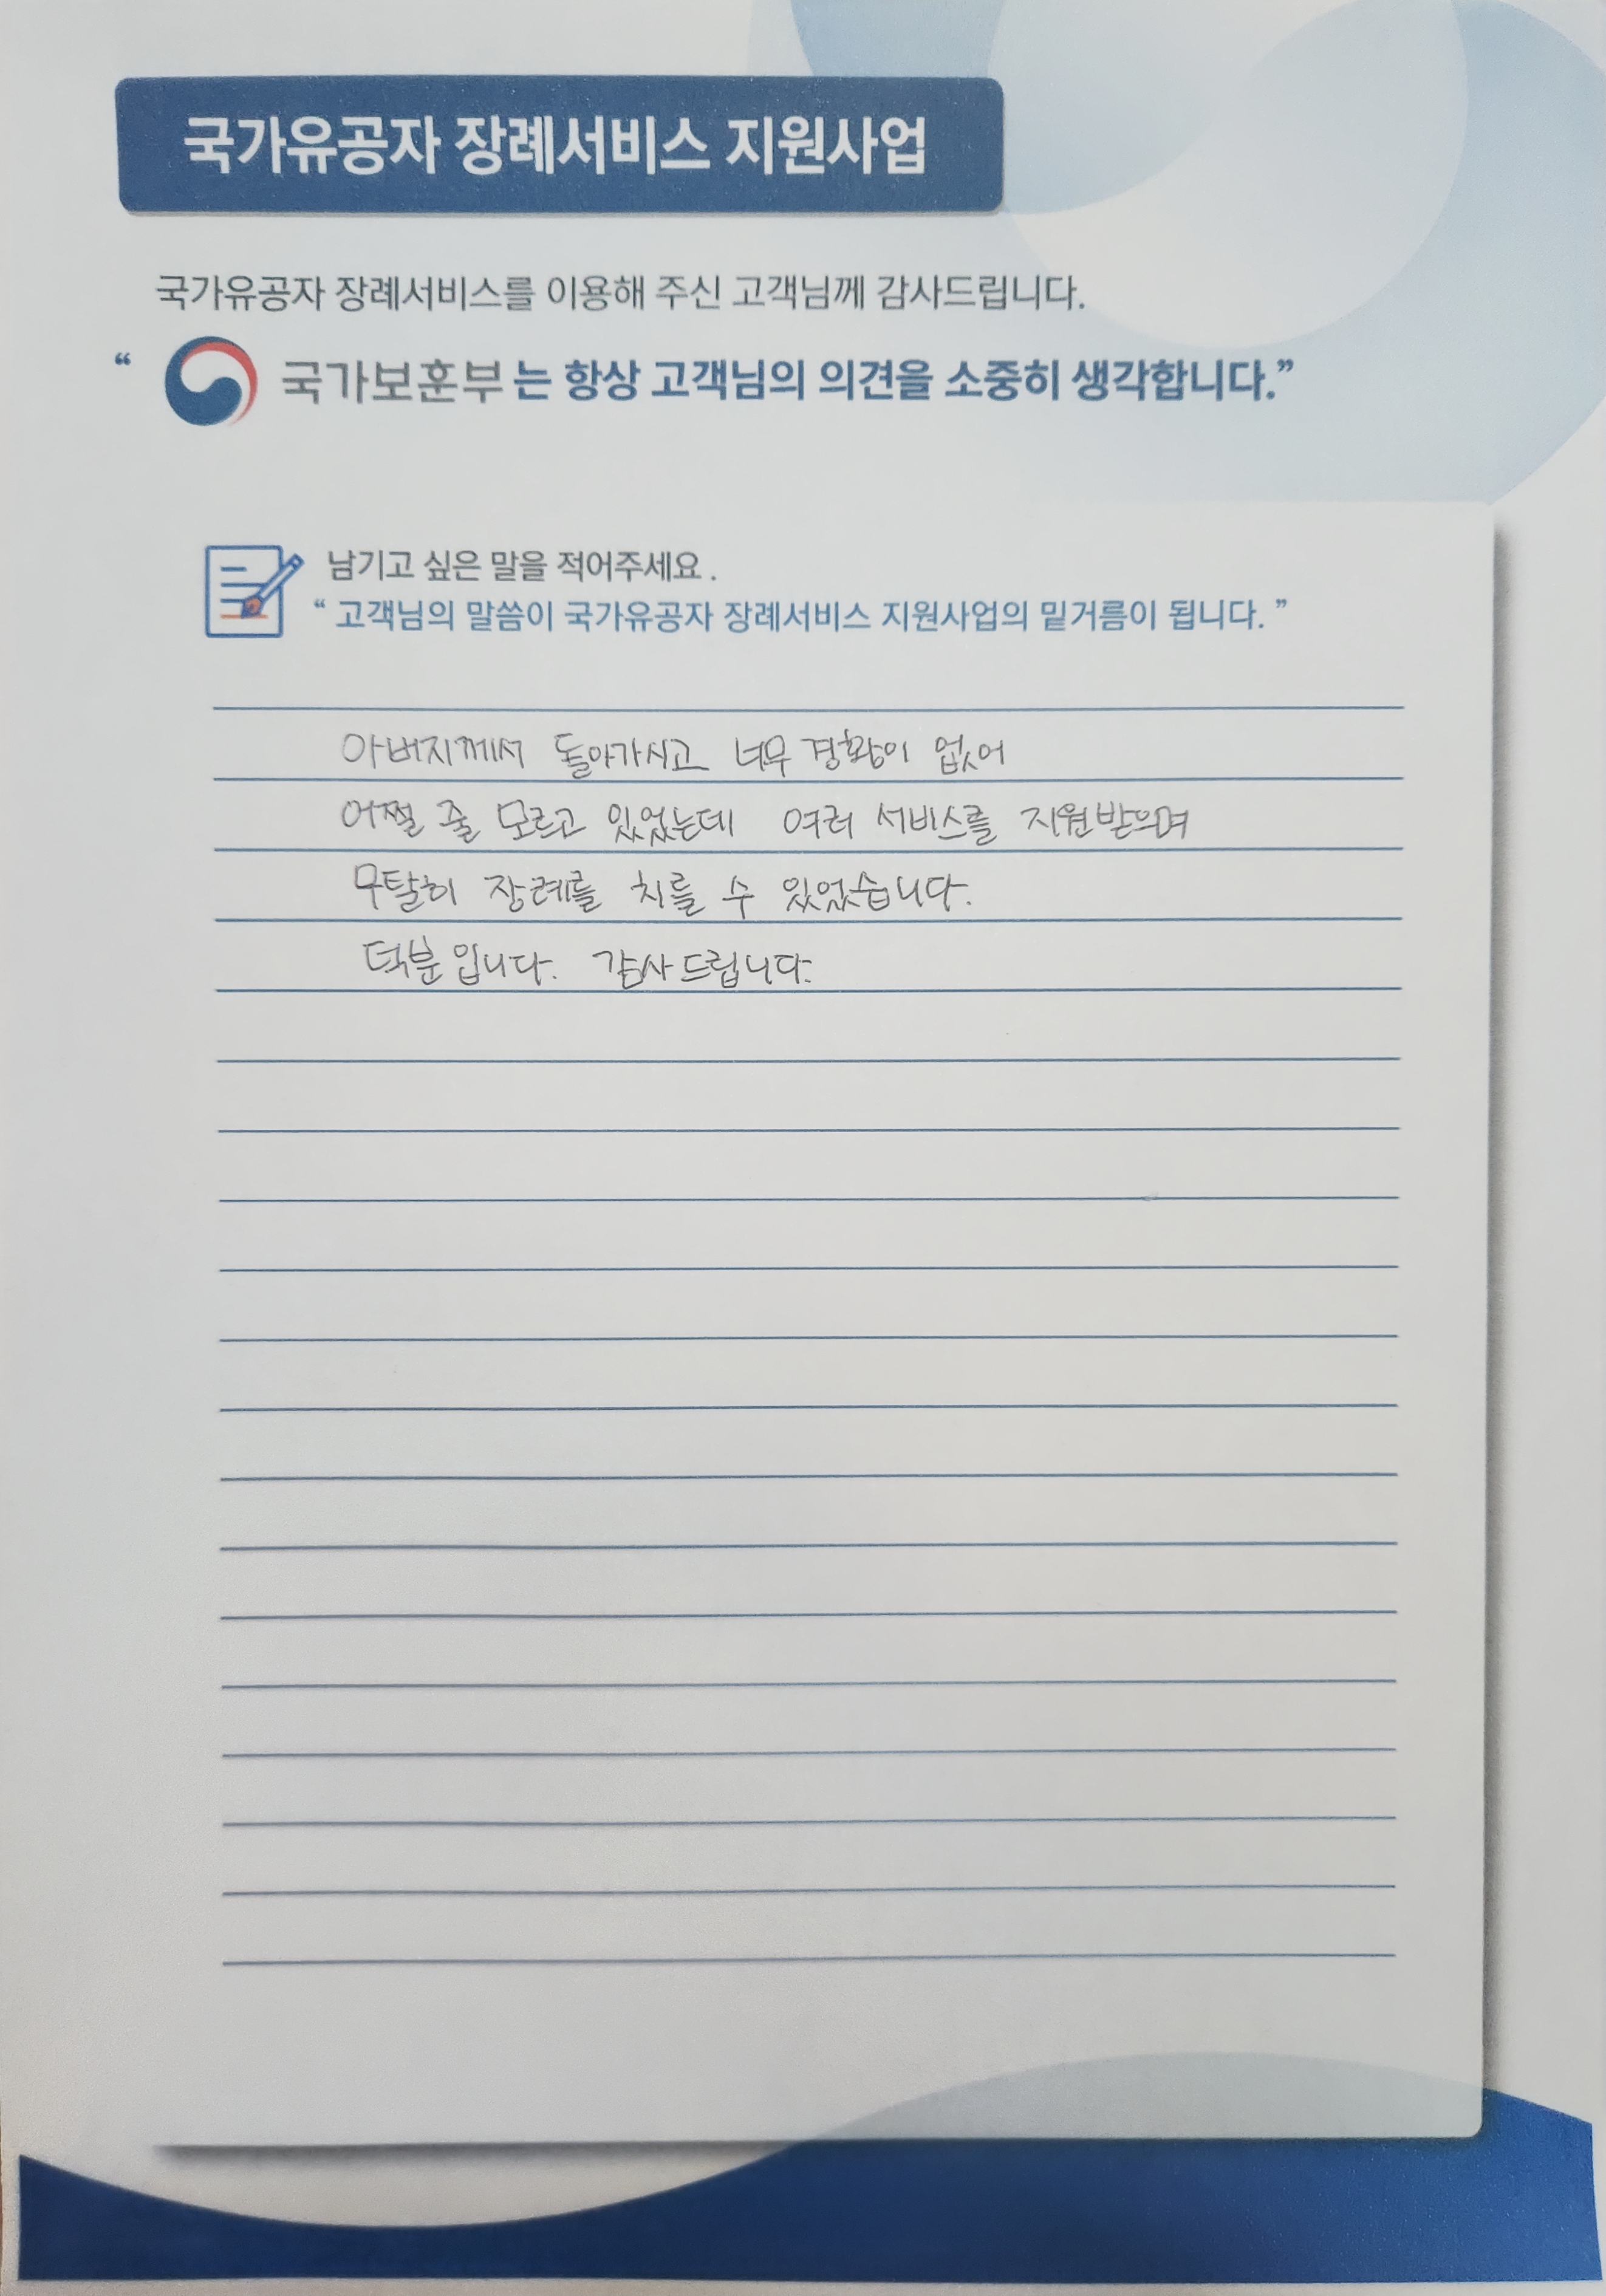 국가유공자 장례서비스 지원사업
국가유공자 장례서비스를 이용해 주신 고객님께 감사드립니다.
“ 국가보훈부 는 항상 고객님의 의견을 소중히 생각합니다.”
남기고 싶은 말을 적어주세요 .
“ 고객님의 말씀이 국가유공자 장례서비스 지원사업의 밑거름이 됩니다. ”
아버지께서 돌아가시고 너무 경황이 없어
어쩔 줄 모르고 있었는데 여러 서비스를 지원받으며
무탈히 장례를 치를 수 있었습니다.
덕분입니다. 감사드립니다.